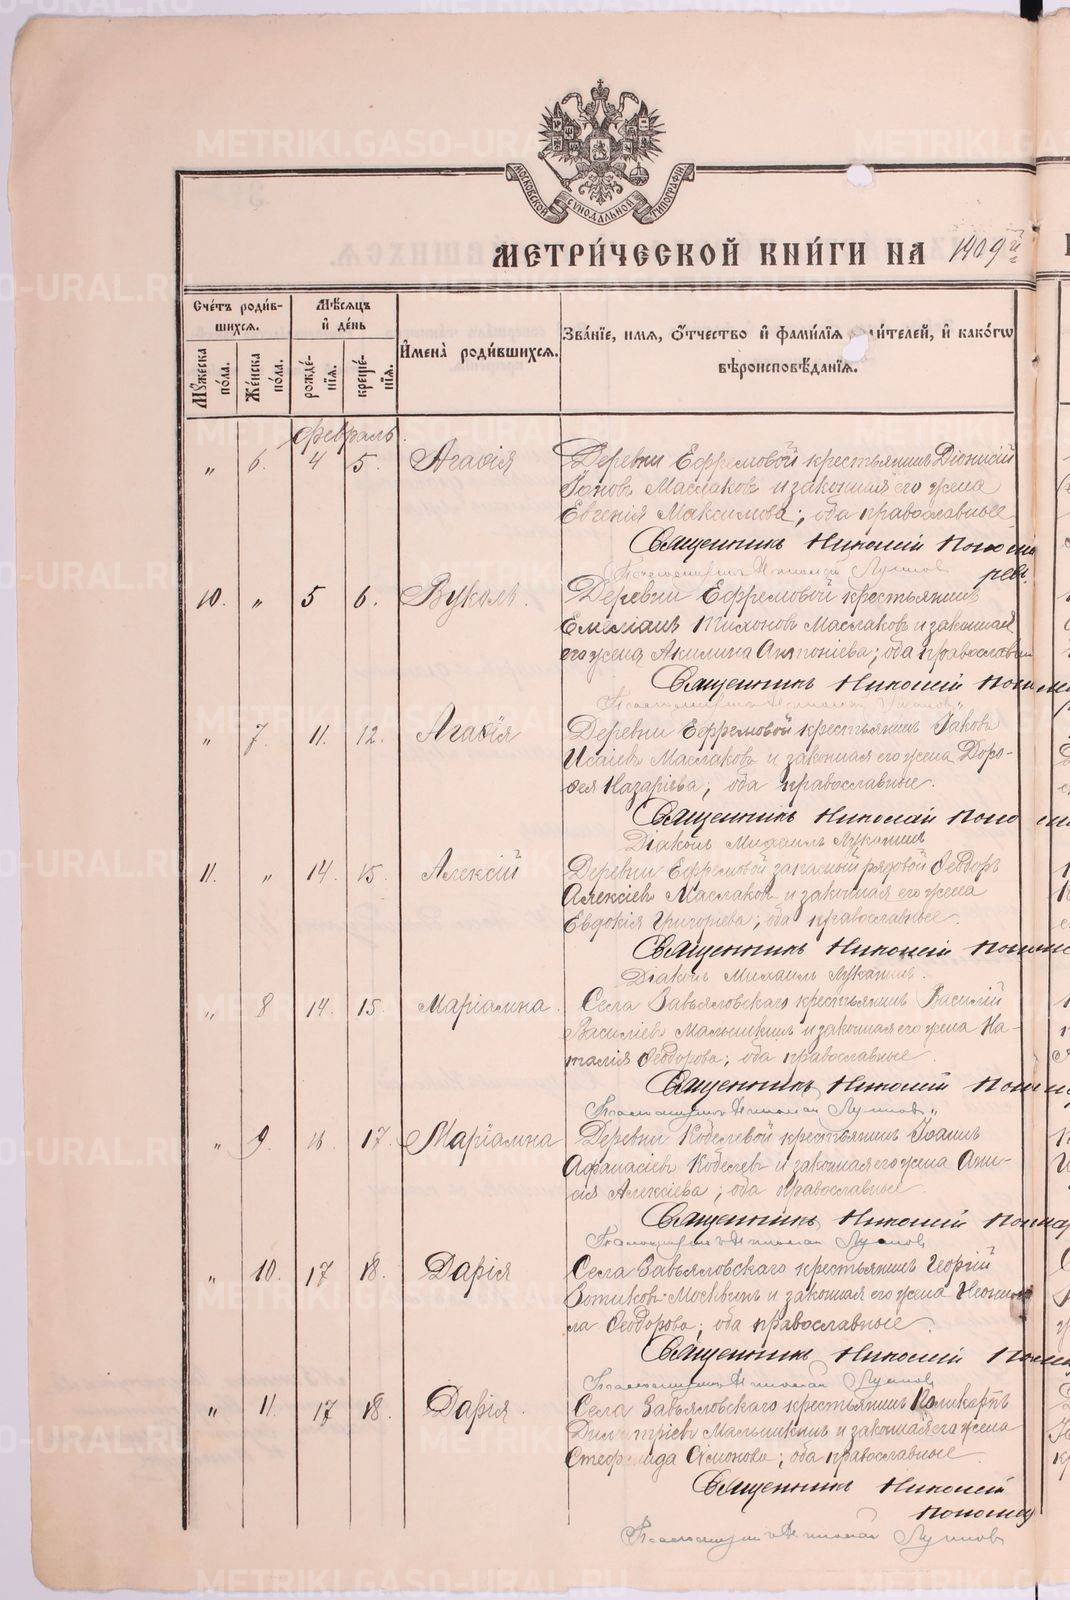 МОСКОВСКОЙ СѴНОДАЛЬНОЙ ТИПОГРАФІИ
МЕТРИ́ЧЕСКОЙ КНИ́ГИ НА 1909 й
Сче́тъ роди́в-
шихся.
Мѣ́сяцъ
и҆ де́нь
Мꙋ́жеска по́ла.
Же́нска по́ла.
рожде́-нїѧ.
креще́-нїѧ.
И҆мена̀ роди́вшихся.
Зва́нїе, имѧ, Ѻ҆́тчество и҆ фами́лїѧ ро ителей, и҆ како́гѡ
вѣроисповѣ́данїѧ.
февраль.
„ 6. 4 5. Агаѳія
Деревни Ефремовой крестьянинъ Діонисій
Іановъ Маслаковъ и законная его жена
Евгенія Максимова; оба православные
Священникъ Николай Пономаревъ
Псаломщикъ Діаконъ
10. „ 5 6. Вуколъ.
Деревни Ефремовой крестьянинъ
Емеліанъ Тихоновъ Маслаковъ и законная
его жена Акилина Антоніева; оба православн
Священникъ Николай
Псаломщикъ Діаконъ
„ 7 11. 12. Агаѳія
Деревни Ефремовой крестьянинъ Іаковъ
Исаіевъ Маслаковъ и законная его жена Доро-
ѳея Назаріева; оба православные.
Священникъ Николай
Діаконъ Михаилъ Луканинъ
11. „ 14. 15. Алексій
Деревни Ефремовой запасный рядовой Ѳеодоръ
Алексіевъ Маслаковъ и законная его жена
Евдокія Григоріева; оба православные.
Священникъ Николай
Діаконъ Михаилъ Луканинъ.
„ 8 14. 15. Маріамна.
Села Завьяловскаго крестьянинъ Василій
Василіевъ Малышкинъ и законная его жена На-
талія Ѳеодорова; оба православные.
Священникъ Николай
Псаломщикъ Діаконъ
„ 9. 16. 17. Маріамна
Деревни Кобелевой крестьянинъ Іоаннъ
Афанасіевъ Кобелевъ и законная его жена Ани-
сія Алексіева; оба православные
Священникъ Николай
Псаломщикъ Діаконъ
„ 10. 17 18. Дарія
Села Завьяловскаго крестьянинъ Георгій
Зотиковъ Москвинъ и законная его жена Неони-
ла Ѳеодорова; оба православные.
Священникъ Николай
Псаломщикъ Діаконъ
„ 11. 17 18. Дарія.
Села Завьяловскаго крестьянинъ Поликарпъ
Димитріевъ Малышкинъ и законная его жена
Стефанида Симонова; оба православные.
Священникъ Николай
Псаломщикъ Діаконъ
METRIKI.GASO-URAL.RU